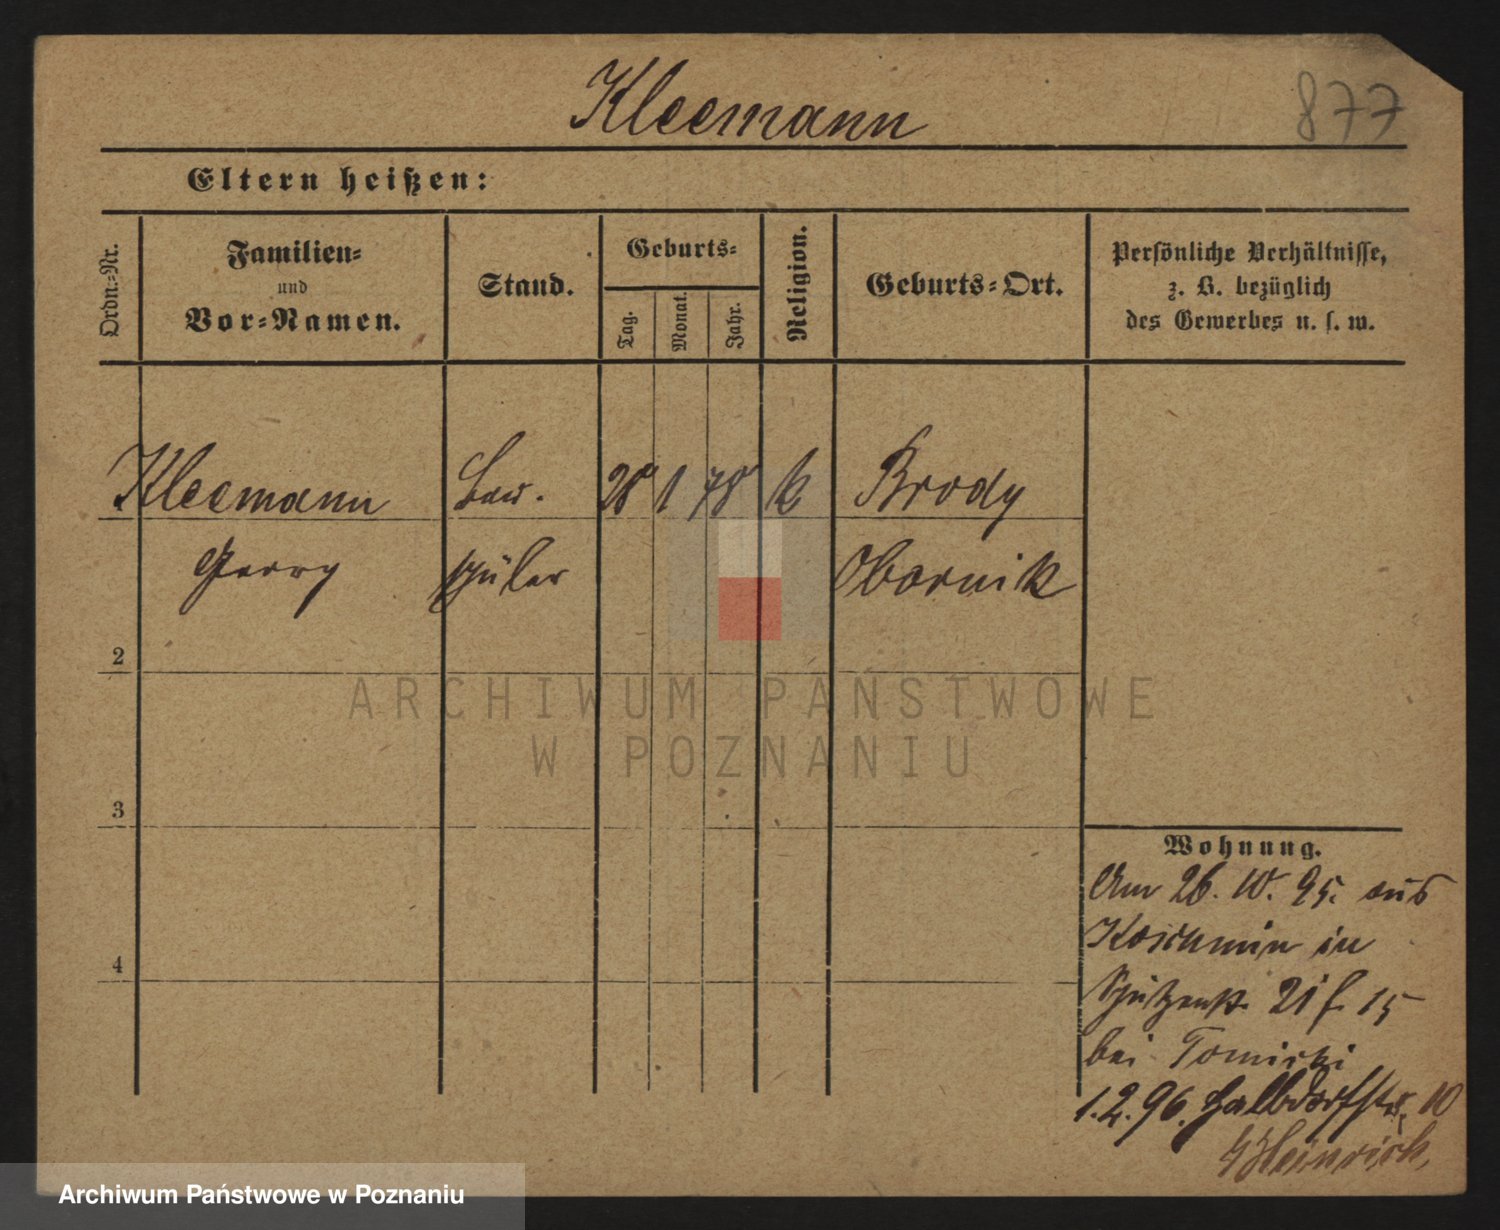 Kleemann
877
Eltern heißen:
Ordn.-Nr.
Familien-
und
Vor-Namen.
Stand.
Geburts-
Tag.
Monat.
Jahr.
Religion.
Geburts-Ort.
Persönliche Verhältnisse,
z. B. bezüglich
des Gewerbes u. s. w.
Kleemann Bau. 28 1 78 k Brody
Georg schüler Obornik
2
3
4
Wohnung.
Am 26. 10. 95. aus
Koschmin in
Schützenstr. 21 f. 15
bei Tomicki
1.2.96. Halbdorfstr. 10
Heinrich
ARCHIWUM PAŃSTWOWE
W POZNANIU
Archiwum Państwowe w Poznaniu